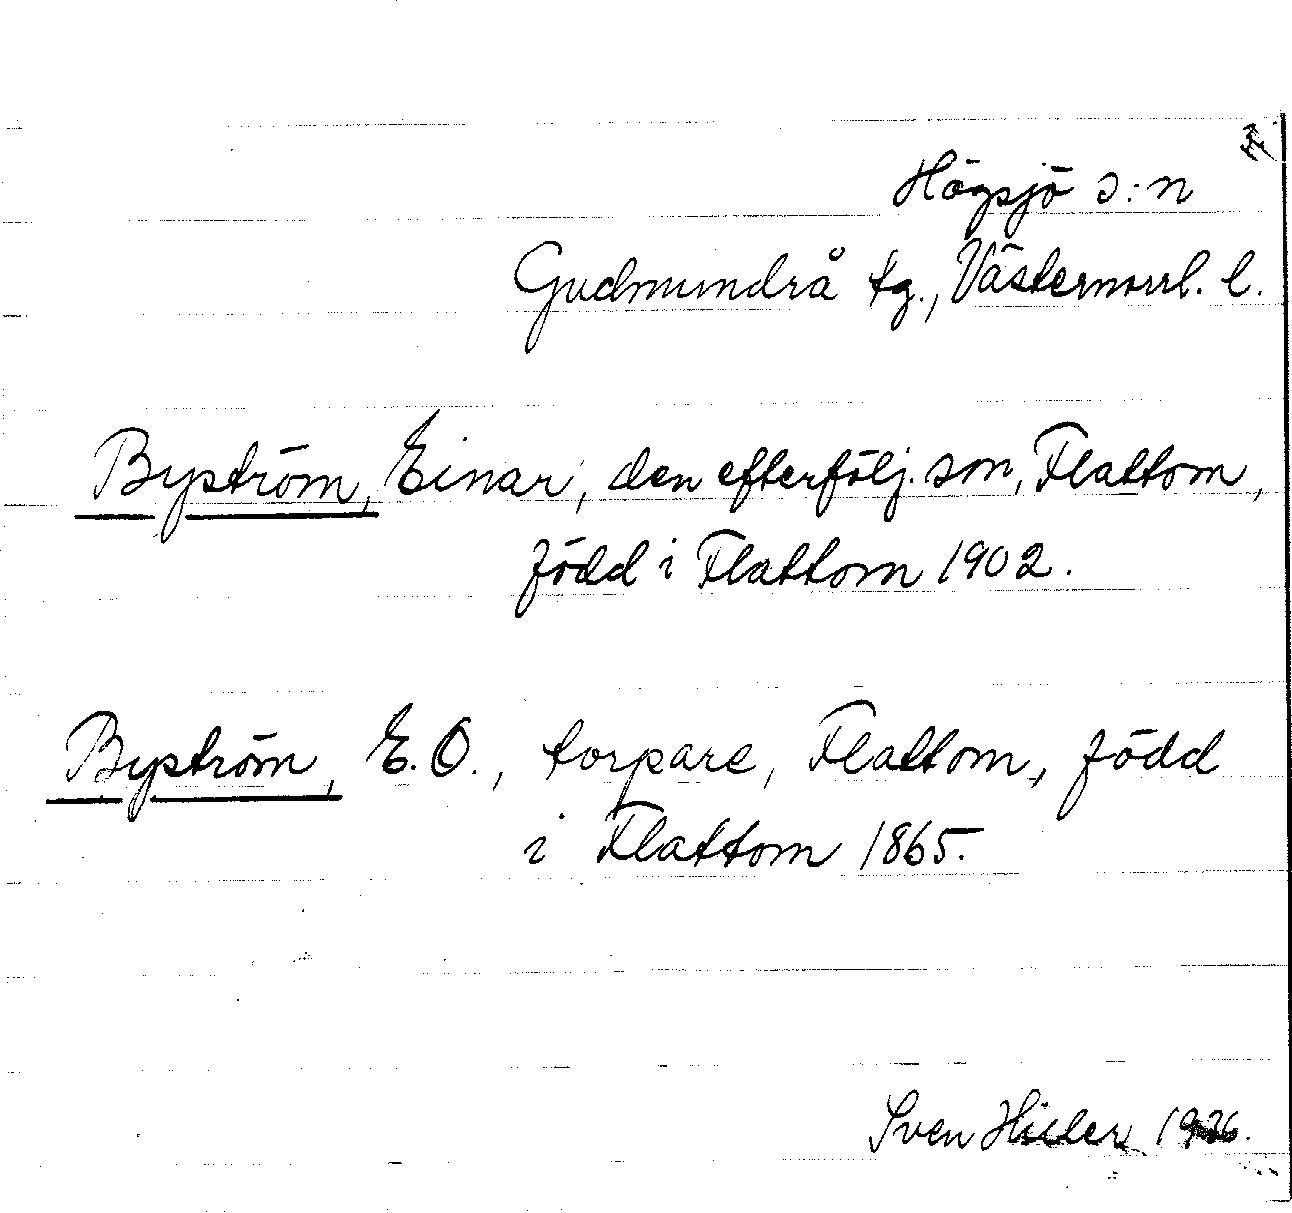 Högsjö s:n
Gudmundrå tg., Västernorrl. l.
Byström, Einar, den efterfölj. son, Flattom,
född i Flattom 1902.
Byström, E.O., torpare, Flattom, född
i Flattom 1865.
Sven Hieler 1926.